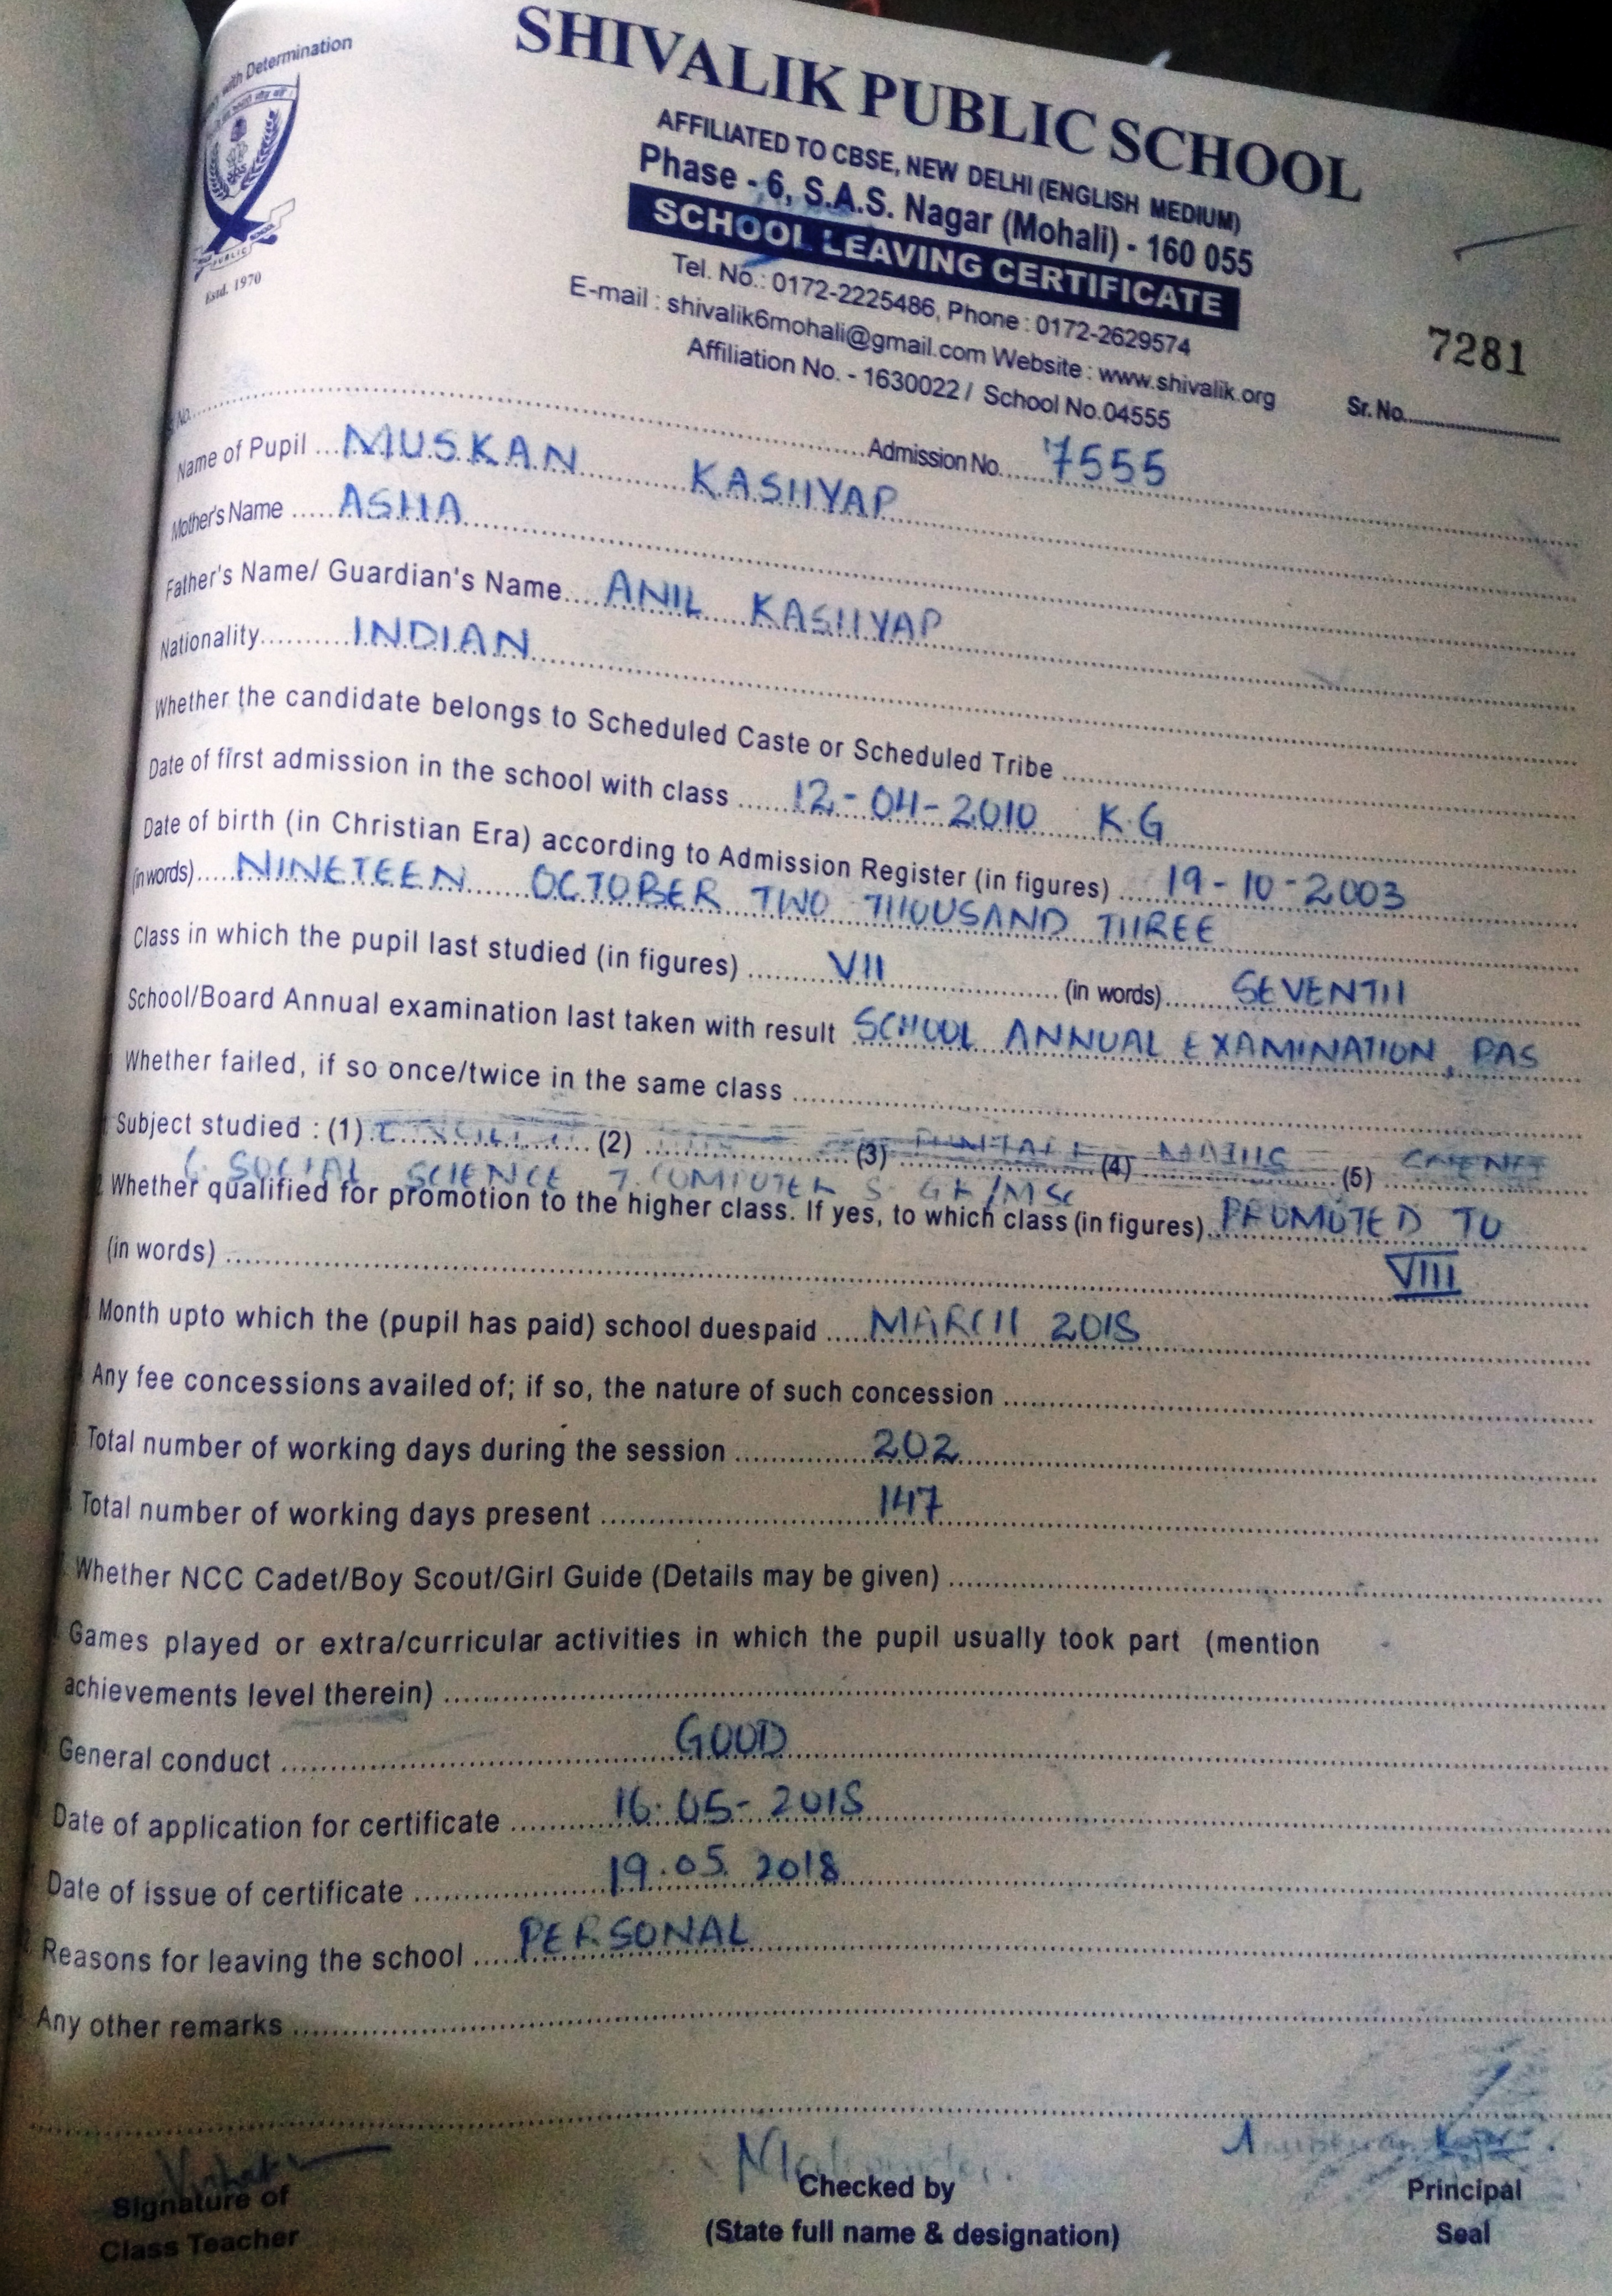 with Determination
SHIVALIK PUBLIC SCHOOL
AFFILIATED TO CBSE, NEW DELHI (ENGLISH MEDIUM)
Phase - 6, S.A.S. Nagar (Mohali) - 160 055
SCHOOL LEAVING CERTIFICATE
Tel. No.: 0172-2225486, Phone : 0172-2629574
E-mail : shivalik6mohali@gmail.com Website : www.shivalik.org
Affiliation No. - 1630022 / School No.04555
PUBLIC SCHOOL
Estd. 1970
7281
Sr. No.
No. Admission No. 7555
Name of Pupil MUSKAN KASHYAP
Mother's Name ASHA
Father's Name/ Guardian's Name ANIL KASHYAP
Nationality INDIAN
Whether the candidate belongs to Scheduled Caste or Scheduled Tribe
Date of first admission in the school with class 12-04-2010 K.G
Date of birth (in Christian Era) according to Admission Register (in figures) 19-10-2003
(in words) NINETEEN OCTOBER TWO THOUSAND THREE
Class in which the pupil last studied (in figures) VII (in words) SEVENTH
School/Board Annual examination last taken with result SCHOOL ANNUAL EXAMINATION, PAS
Whether failed, if so once/twice in the same class
Subject studied : (1) (2) (3) (4) MATHS (5)
6. SOCIAL SCIENCE 7. COMPUTER 8. GK/MSc
Whether qualified for promotion to the higher class. If yes, to which class (in figures) PROMOTED TO
(in words) VIII
Month upto which the (pupil has paid) school duespaid MARCH 2018
Any fee concessions availed of; if so, the nature of such concession
Total number of working days during the session 202
Total number of working days present 147
Whether NCC Cadet/Boy Scout/Girl Guide (Details may be given)
Games played or extra/curricular activities in which the pupil usually took part (mention
achievements level therein)
General conduct GOOD
Date of application for certificate 16-05-2018
Date of issue of certificate 19.05.2018
Reasons for leaving the school PERSONAL
Any other remarks
Signature of
Class Teacher
Checked by
(State full name & designation)
Principal
Seal